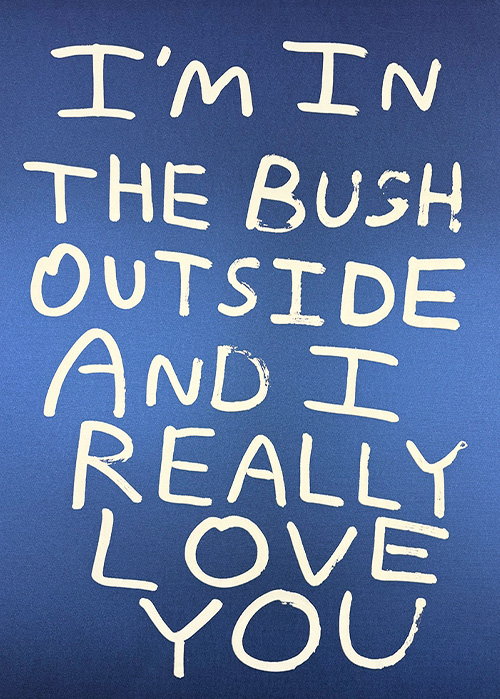 I'M IN
THE BUSH
OUTSIDE
AND I
REALLY
LOVE
YOU